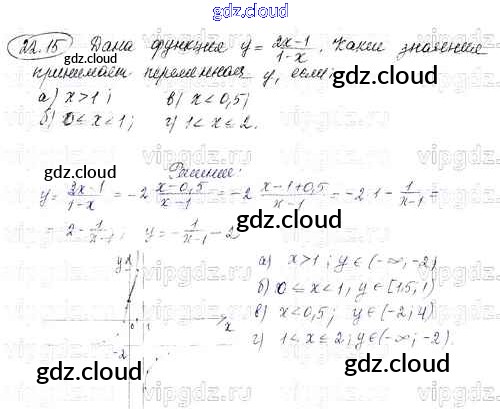 gdz.cloud
22.15 Дана функция y = \frac{2x-1}{1-x}. Какие значения
принимает переменная y, если:
gdz.cloud
а) x>1; в) x<0,5;
б) 0≤x<1; г) 1<x≤2.
gdz.cloud
Решение:
y = \frac{2x-1}{1-x} = -2 \frac{x-0,5}{x-1} = -2 \frac{x-1+0,5}{x-1} = -2 · 1 - \frac{1}{x-1} =
gdz.cloud
= 2 - \frac{1}{x-1}; y = -\frac{1}{x-1} - 2
gdz.cloud
y
а) x>1; y∈(-∞; -2)
б) 0≤x<1; y∈[15; 1)
0 1 x
в) x<0,5; y∈(-2; 4)
г) 1<x≤2; y∈(-∞; -2).
-2
gdz.cloud
gdz.cloud
vipgdz.ru